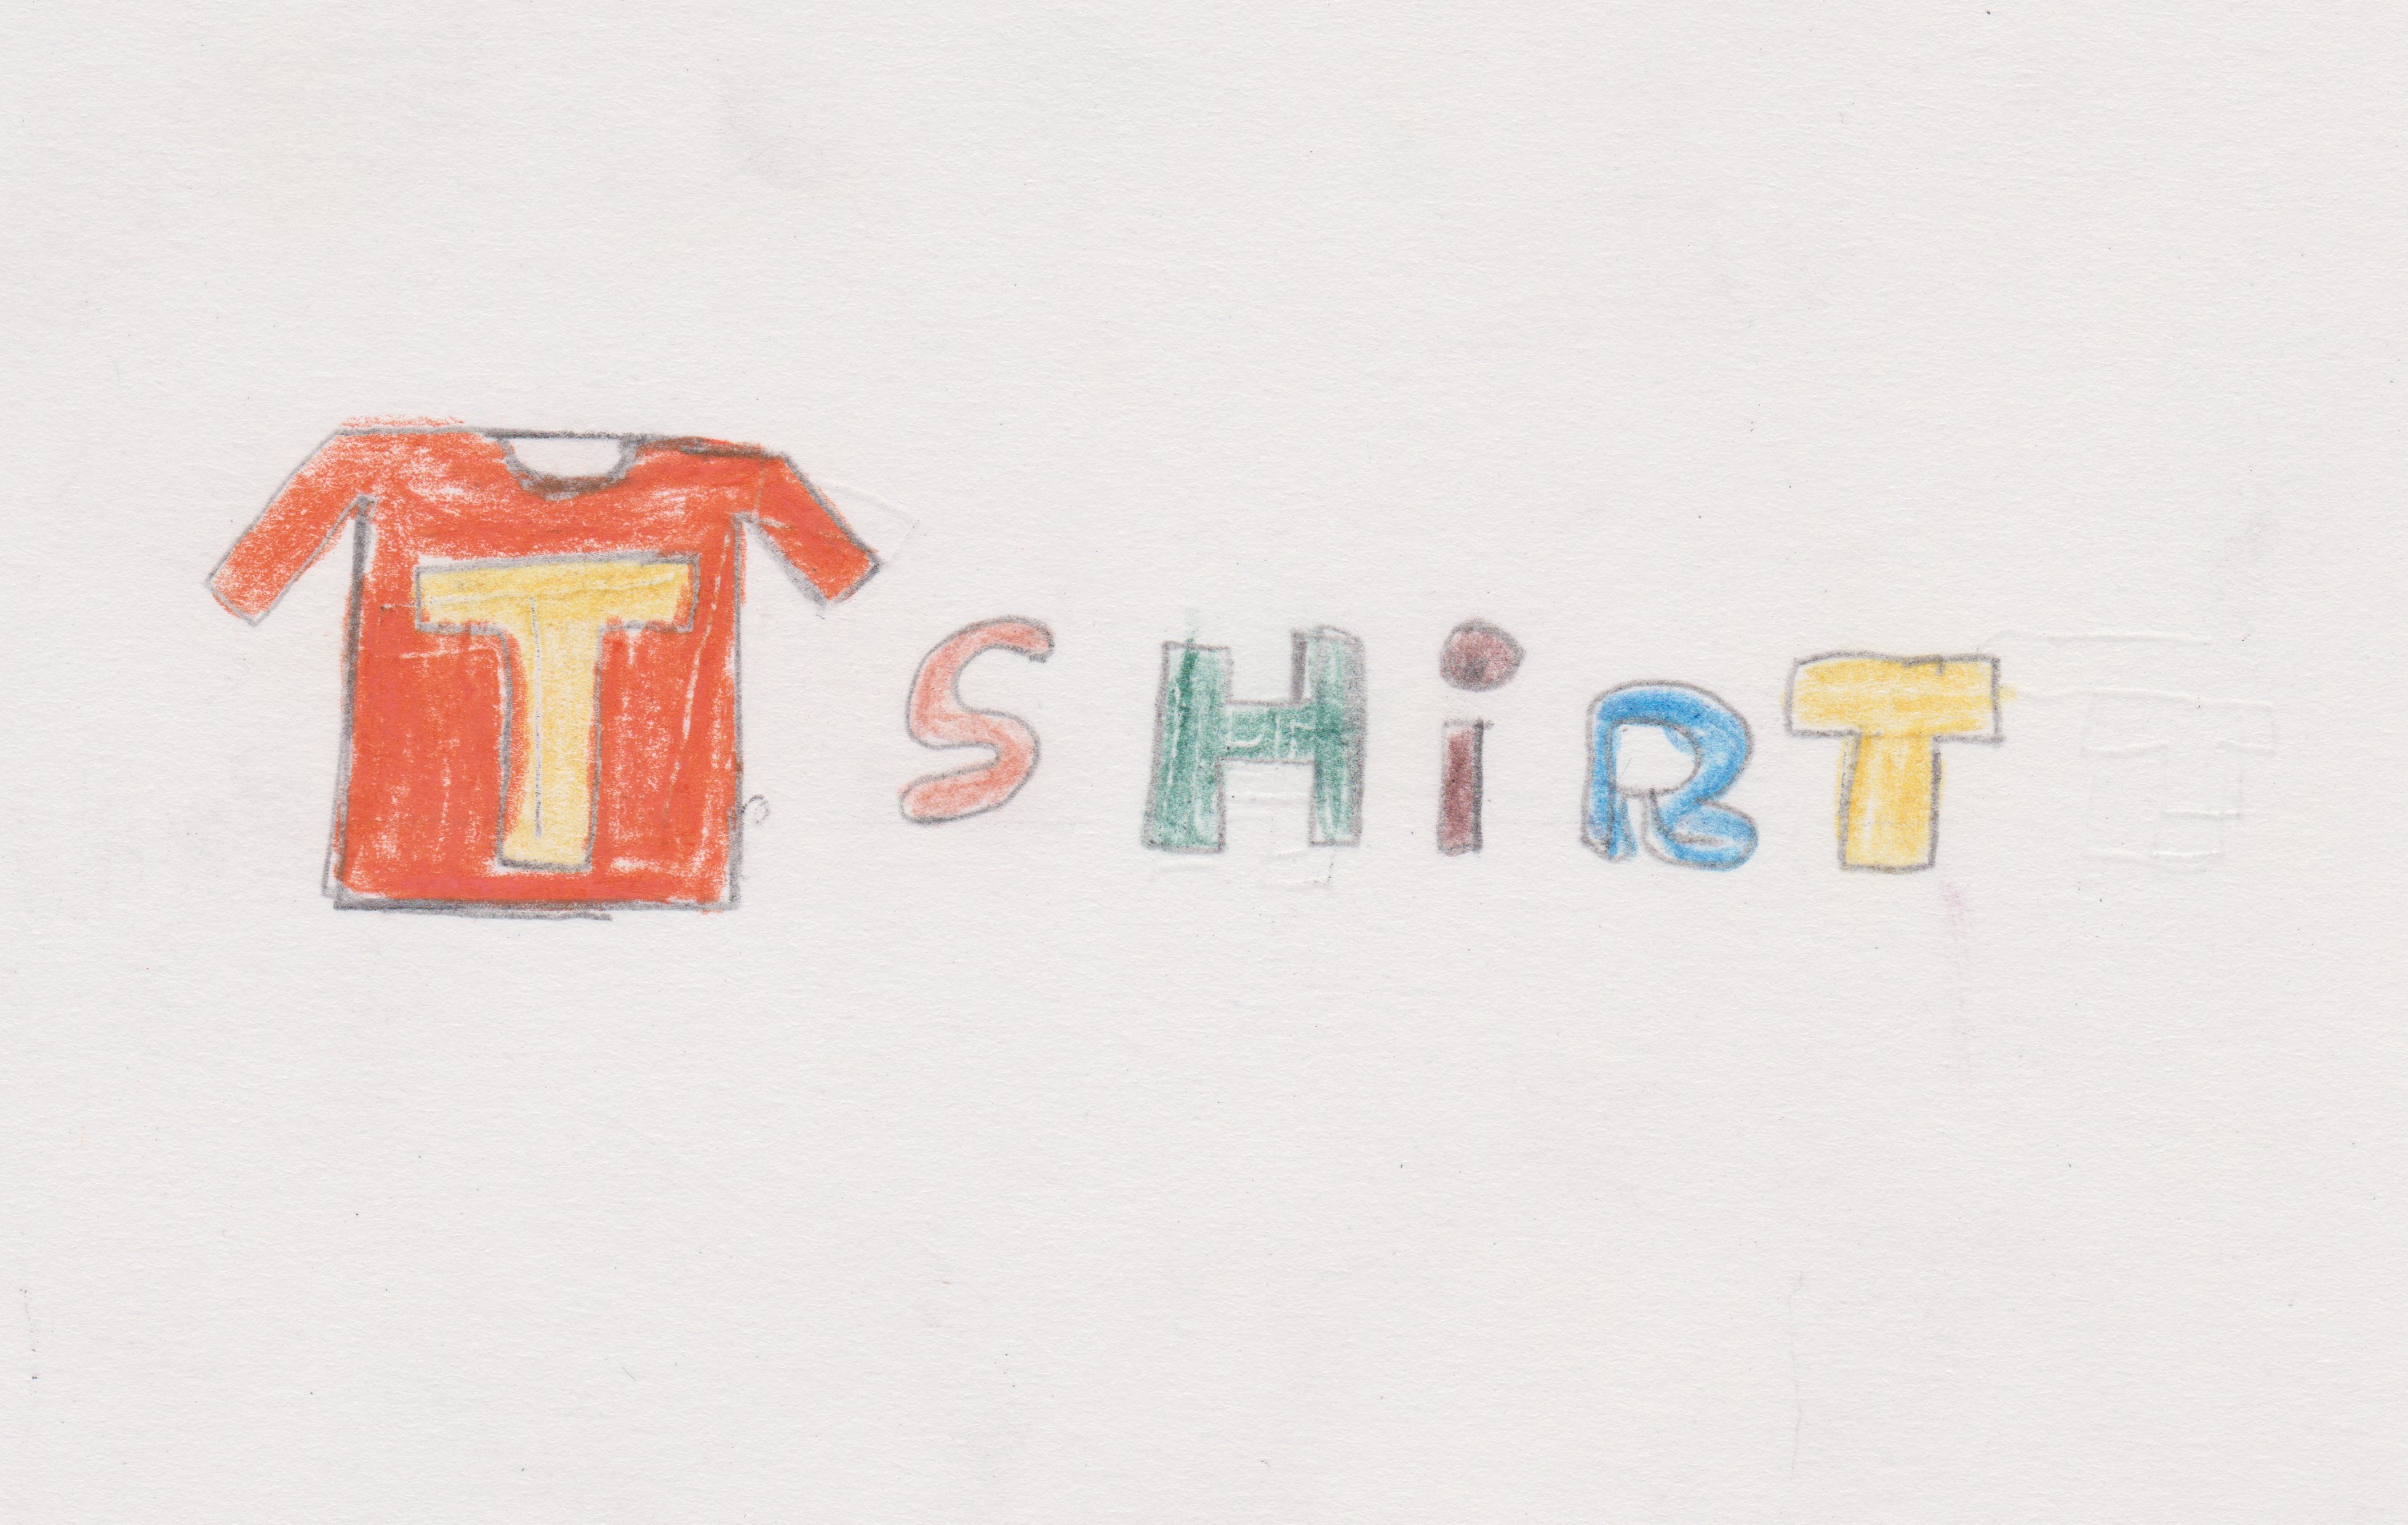 T SHiRT